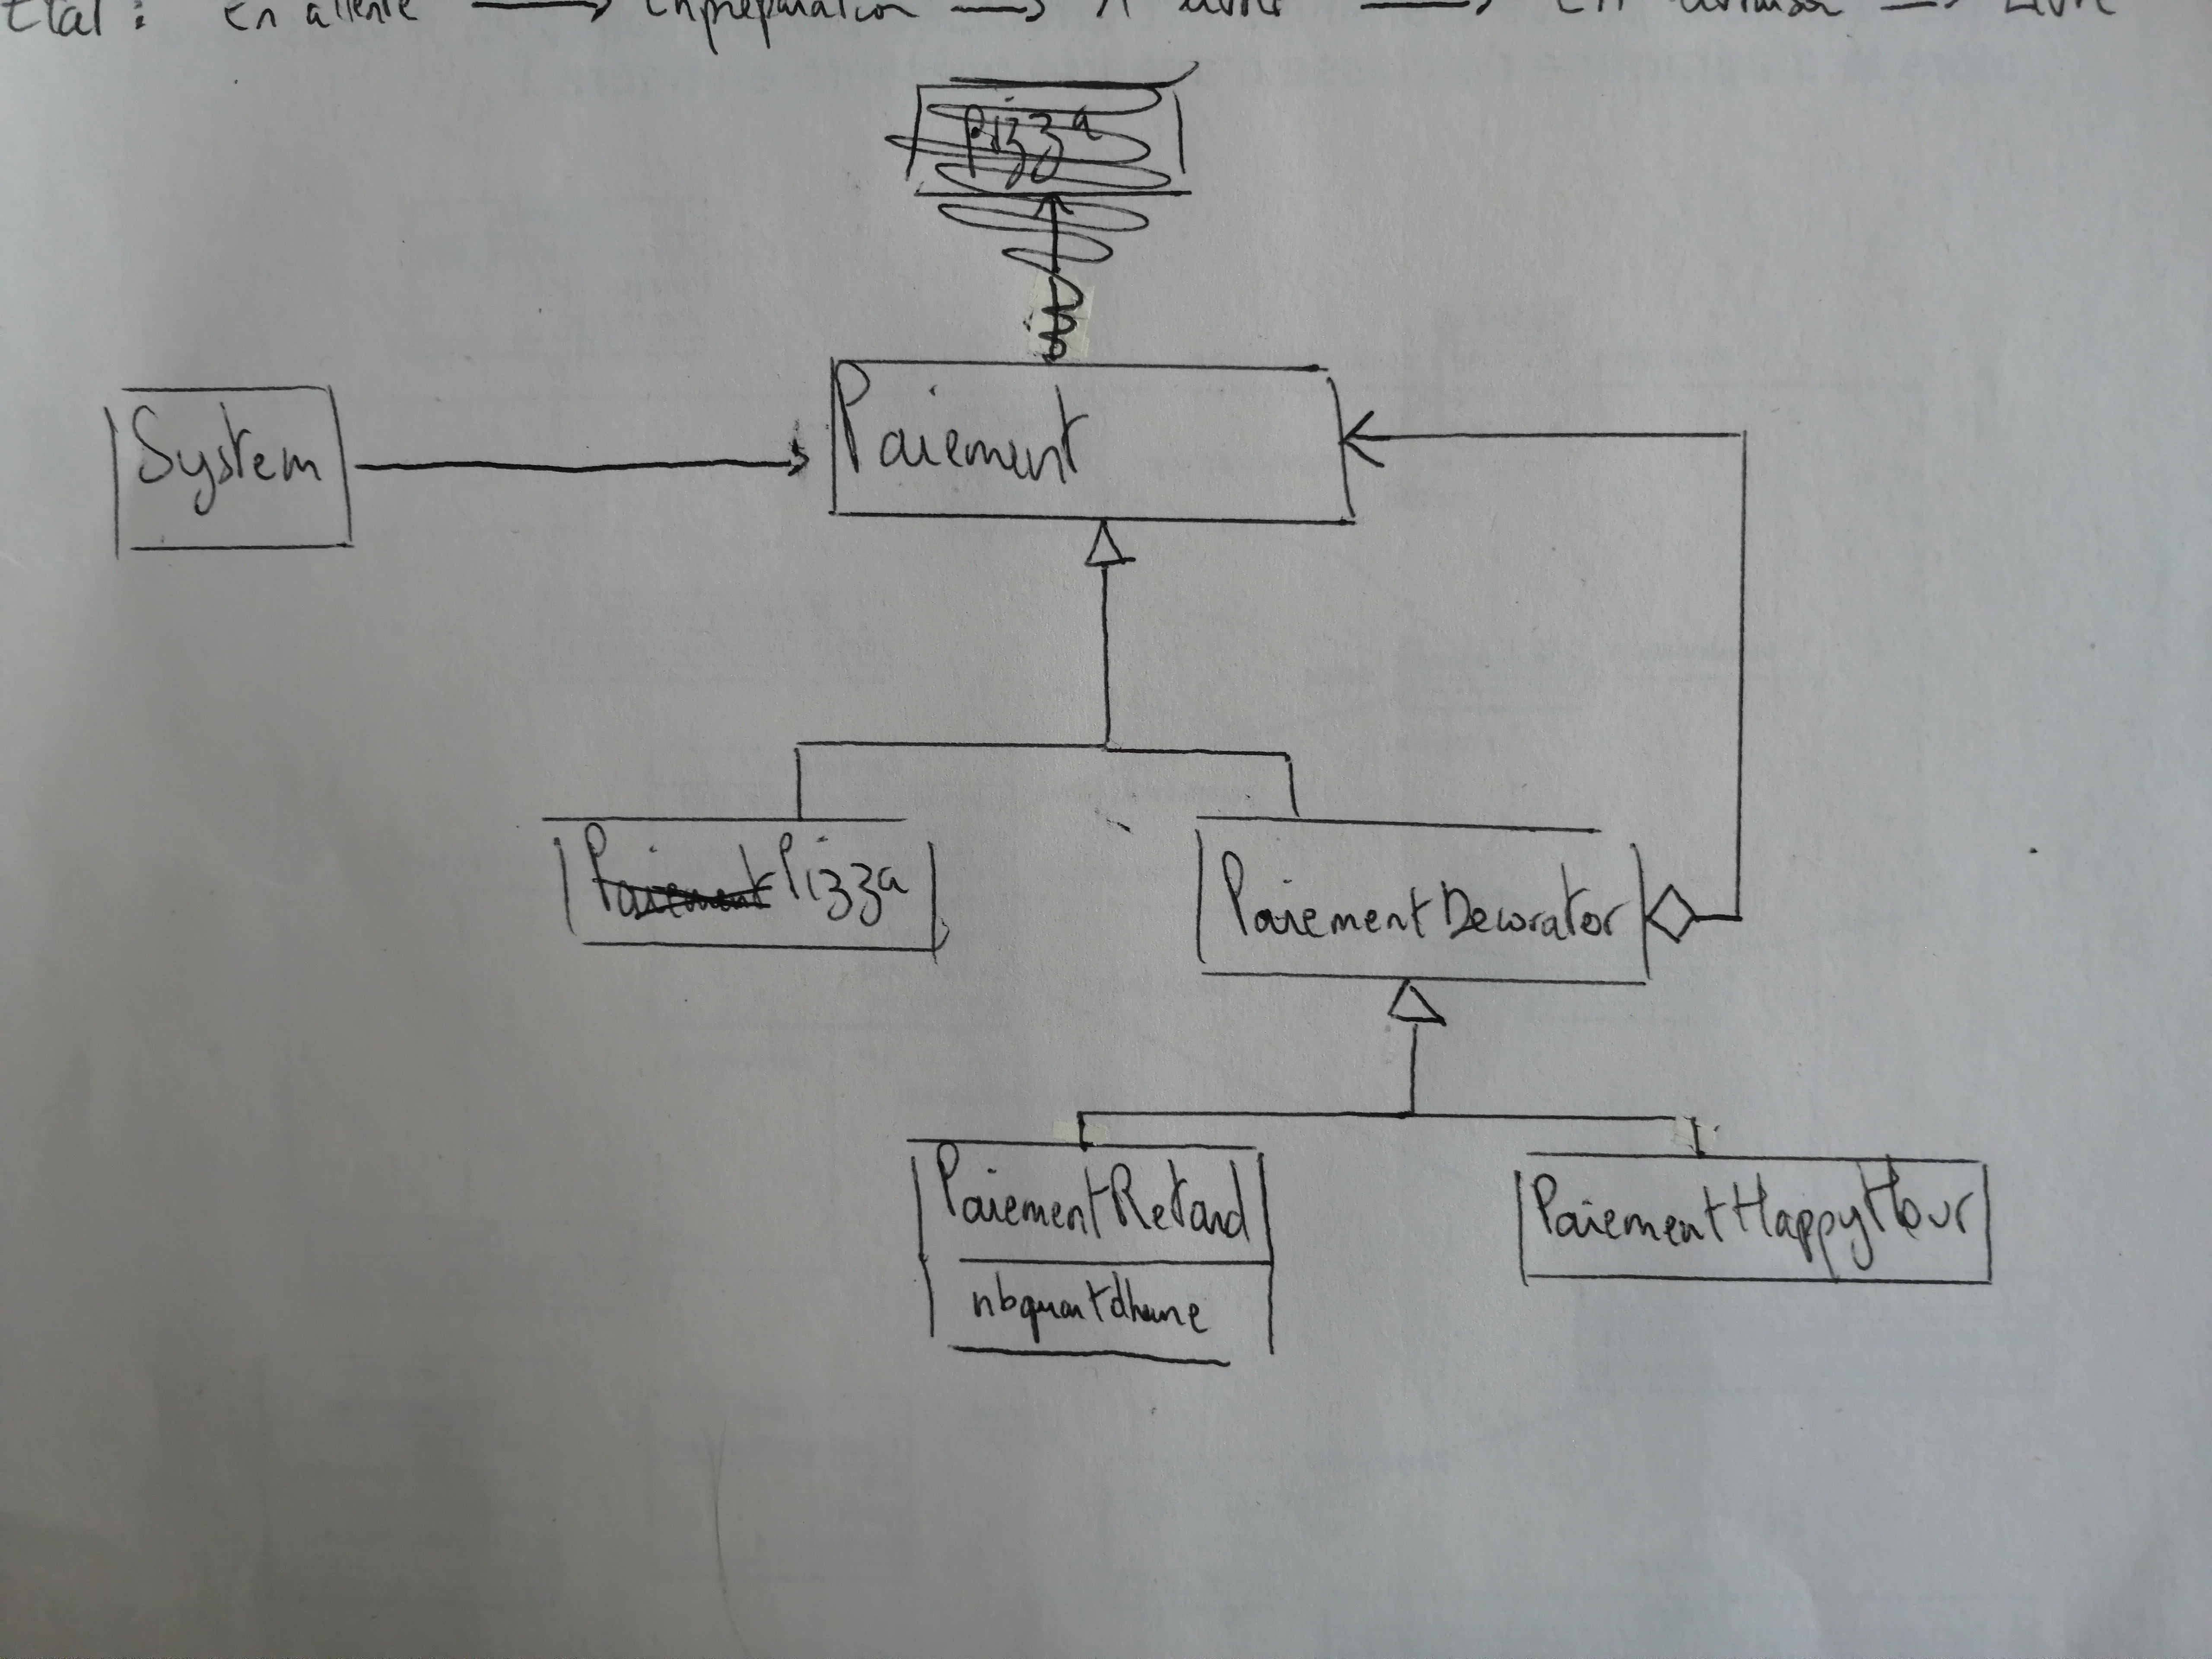 Etat : En attente → En préparation → A livrer → En livraison → Livré
Pizza
System
Paiement
Paiement Pizza
PaiementDecorator
PaiementRetard
PaiementHappyHour
nbquartdheure